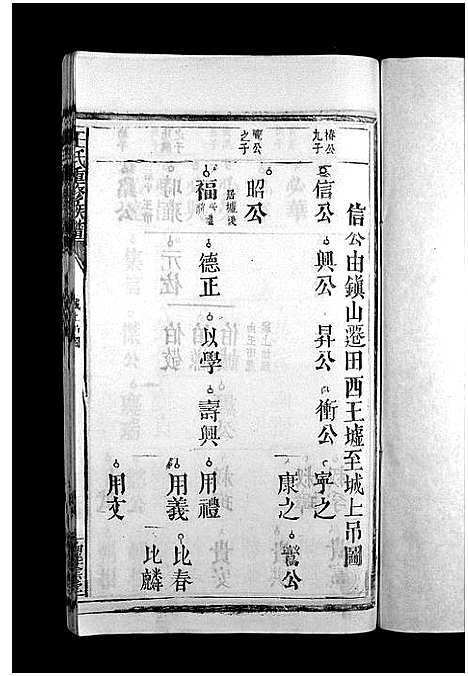 信公由鎮山遷田西王墟至城上吊圖
椿公九子
信公 興公 昇公 衝公 寧之
康之 管公
之子
昭公
居墟後
福 德正 以學 壽興 用禮
用義 比春
比麟
用文
王氏重修族譜